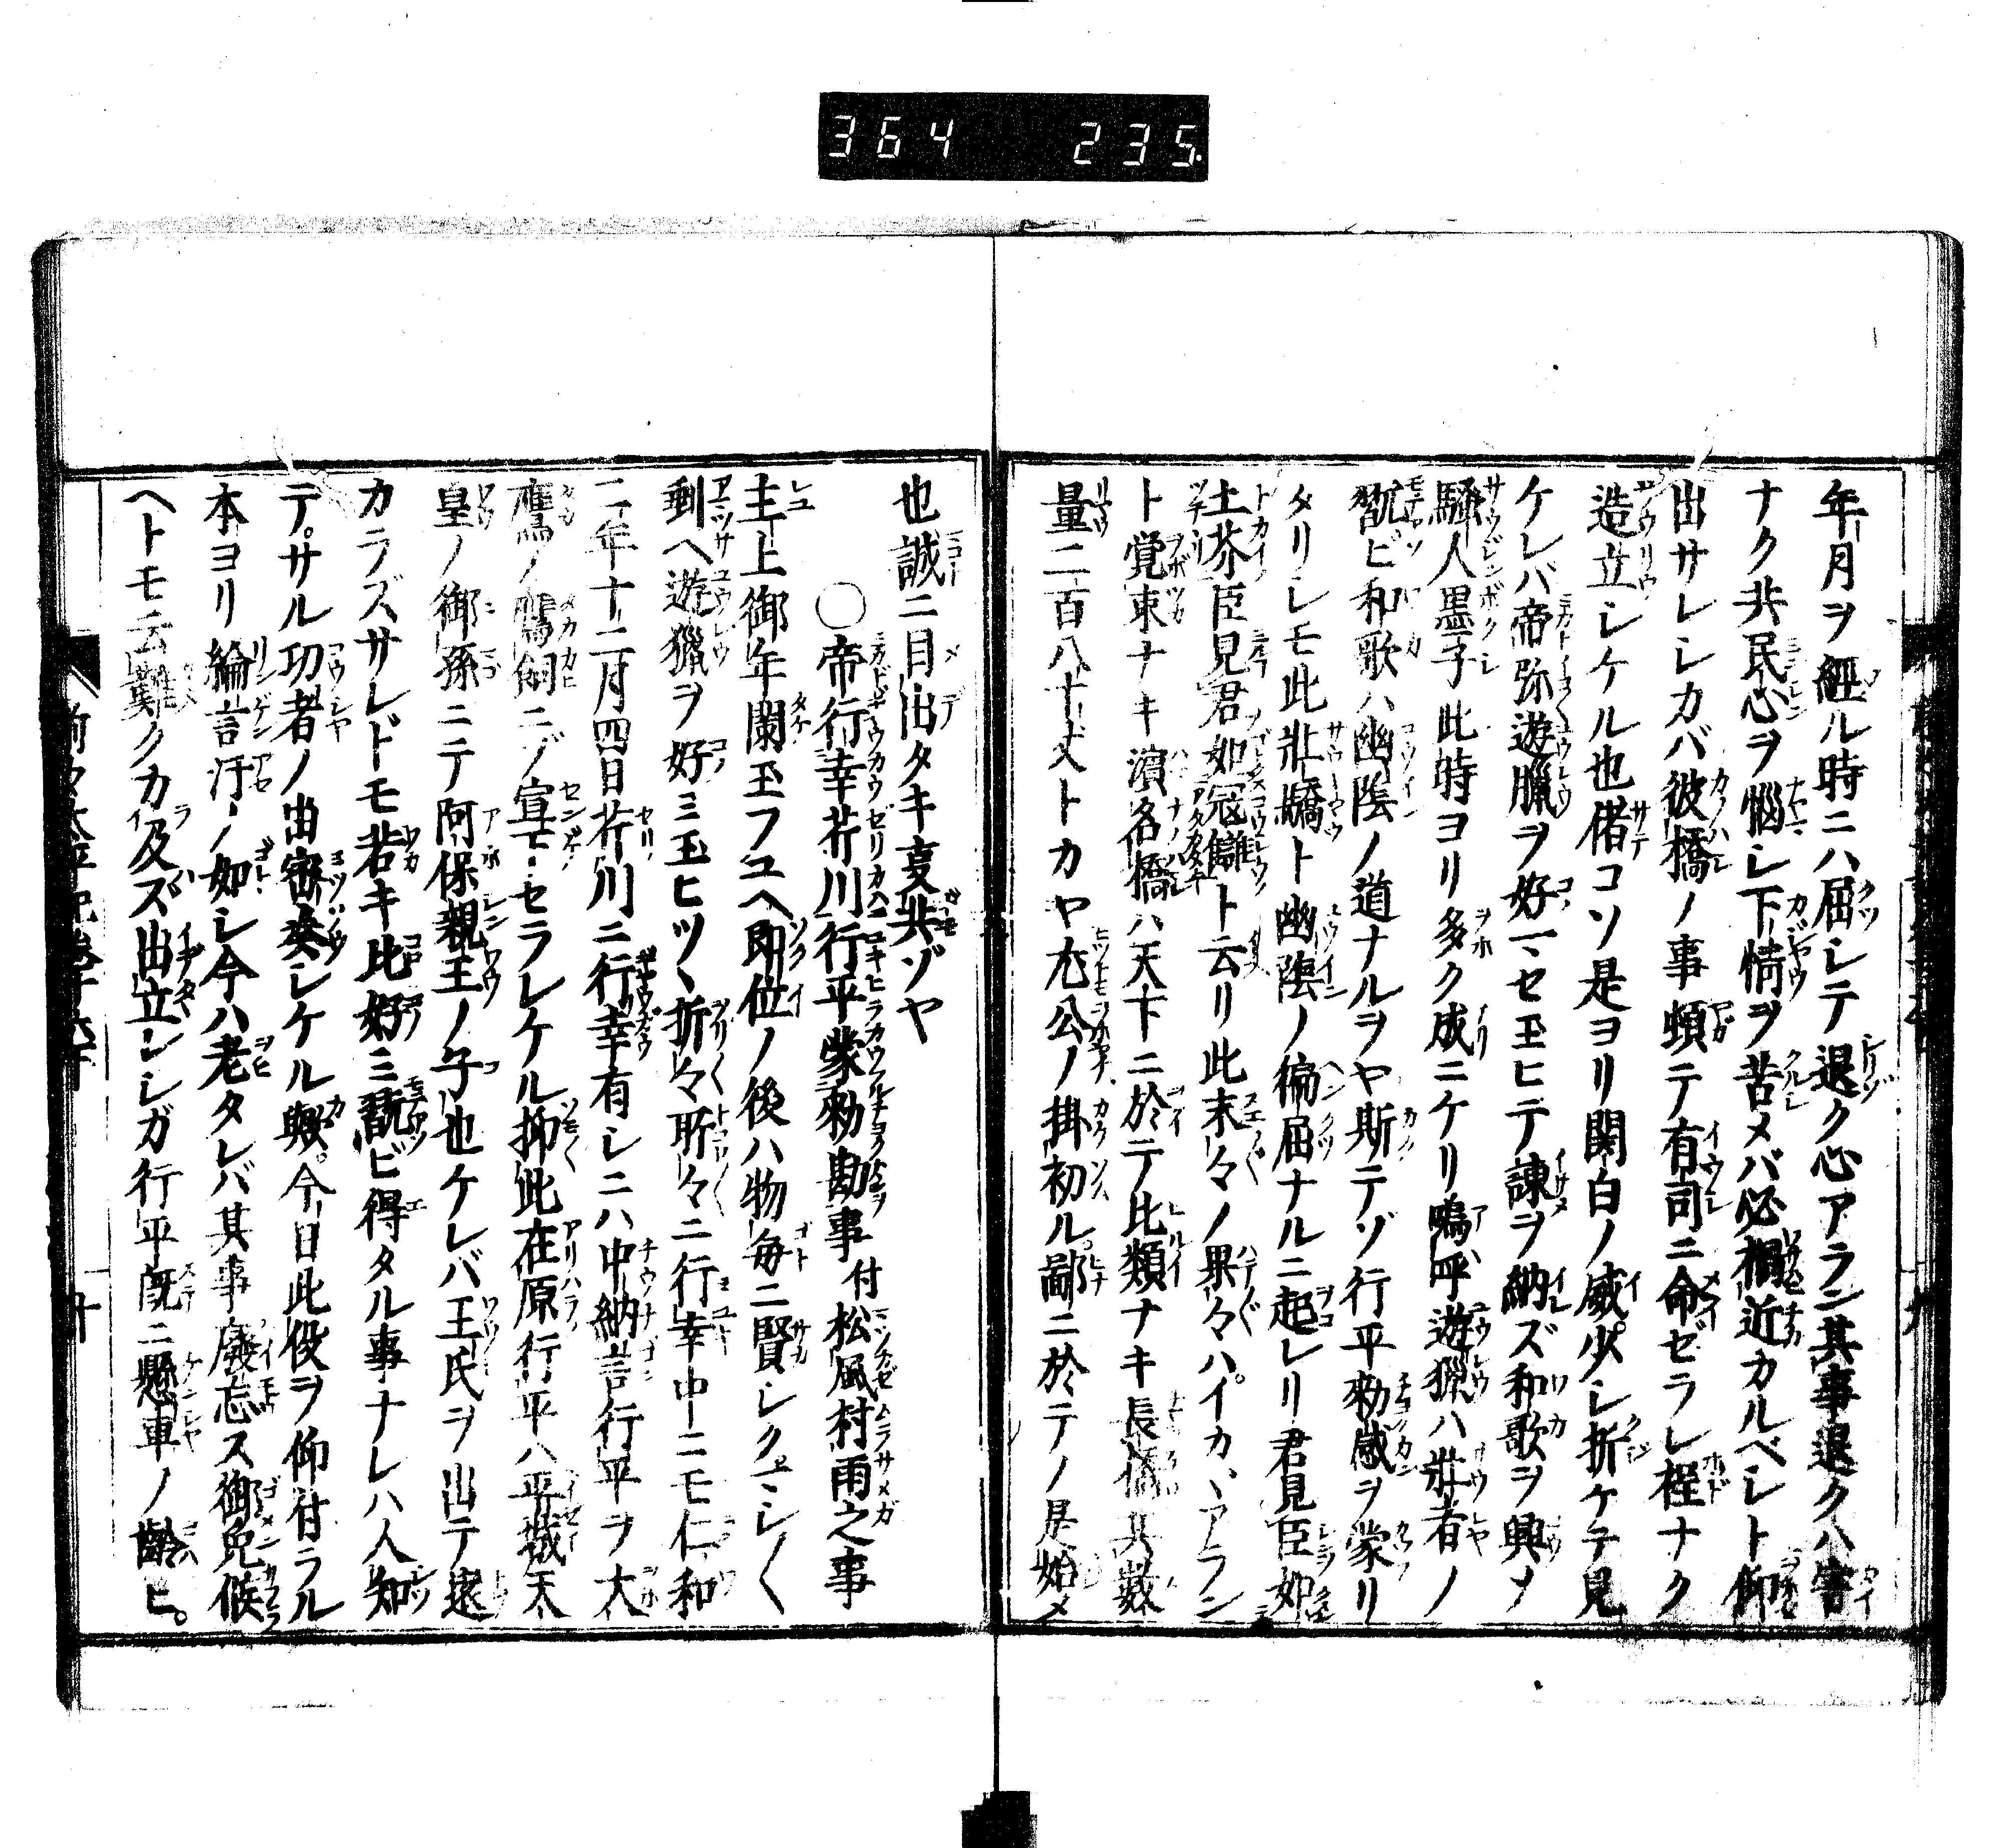 364 235.
年月ヲ經ル時ニハ屈シテ退ク心アラン其事退クハ害
ナク共民心ヲ惱シ下情ヲ苦メバ必禍近カルベシト仰
出サレシカバ彼橋ノ事頓テ有司ニ命ゼラレ程ナク
造立シケル也偖コソ是ヨリ関白ノ威少シ折ケテ見
ケレバ帝弥遊臘ヲ好マセ玉ヒテ諌ヲ納ズ和歌ヲ興メ
騒人墨子此時ヨリ多ク成ニケリ嗚呼遊獵ハ壯者ノ
翫ビ和歌ハ幽陰ノ道ナルヲヤ斯テゾ行平勅感ヲ蒙リ
タリシモ此壯驕ト幽陰ノ偏屈ナルニ起レリ君見臣如
土芥臣見君如冦讎ト云リ此末々ノ果々ハイカヽアラン
ト覚束ナキ濱名橋ハ天下ニ於テ比類ナキ長橋其數
量二百八十丈トカヤ尤公ノ掛初ル鄙ニ於テノ是始メ
也誠ニ目出タキ叓共ゾヤ
○帝行幸芹川行平蒙勅勘事 付松風村雨之事
主上御年闌玉フユヘ即位ノ後ハ物毎ニ賢シクマシ〳〵
郵ヘ遊獵ヲ好ミ玉ヒツヽ折々所々ニ行幸中ニモ仁和
二年十二月四日芹川ニ行幸有シニハ中納言行平ヲ大
鷹ノ鷹飼ニゾ宣下セラレケル抑此在原行平ハ平城天
皇ノ御孫ニテ阿保親王ノ子也ケレバ王氏ヲ出テ遠
カラズサレドモ若キ比好ミ翫ビ得タル事ナレハ人知
テサル功者ノ由密奏シケル歟今日此役ヲ仰付ラル
本ヨリ綸言汗ノ如シ今ハ老タレバ其事廢忘ス御免候
ヘトモ云難クカ及ズ出立シガ行平既ニ懸車ノ齢ヒ
前々太平記巻十六下
九